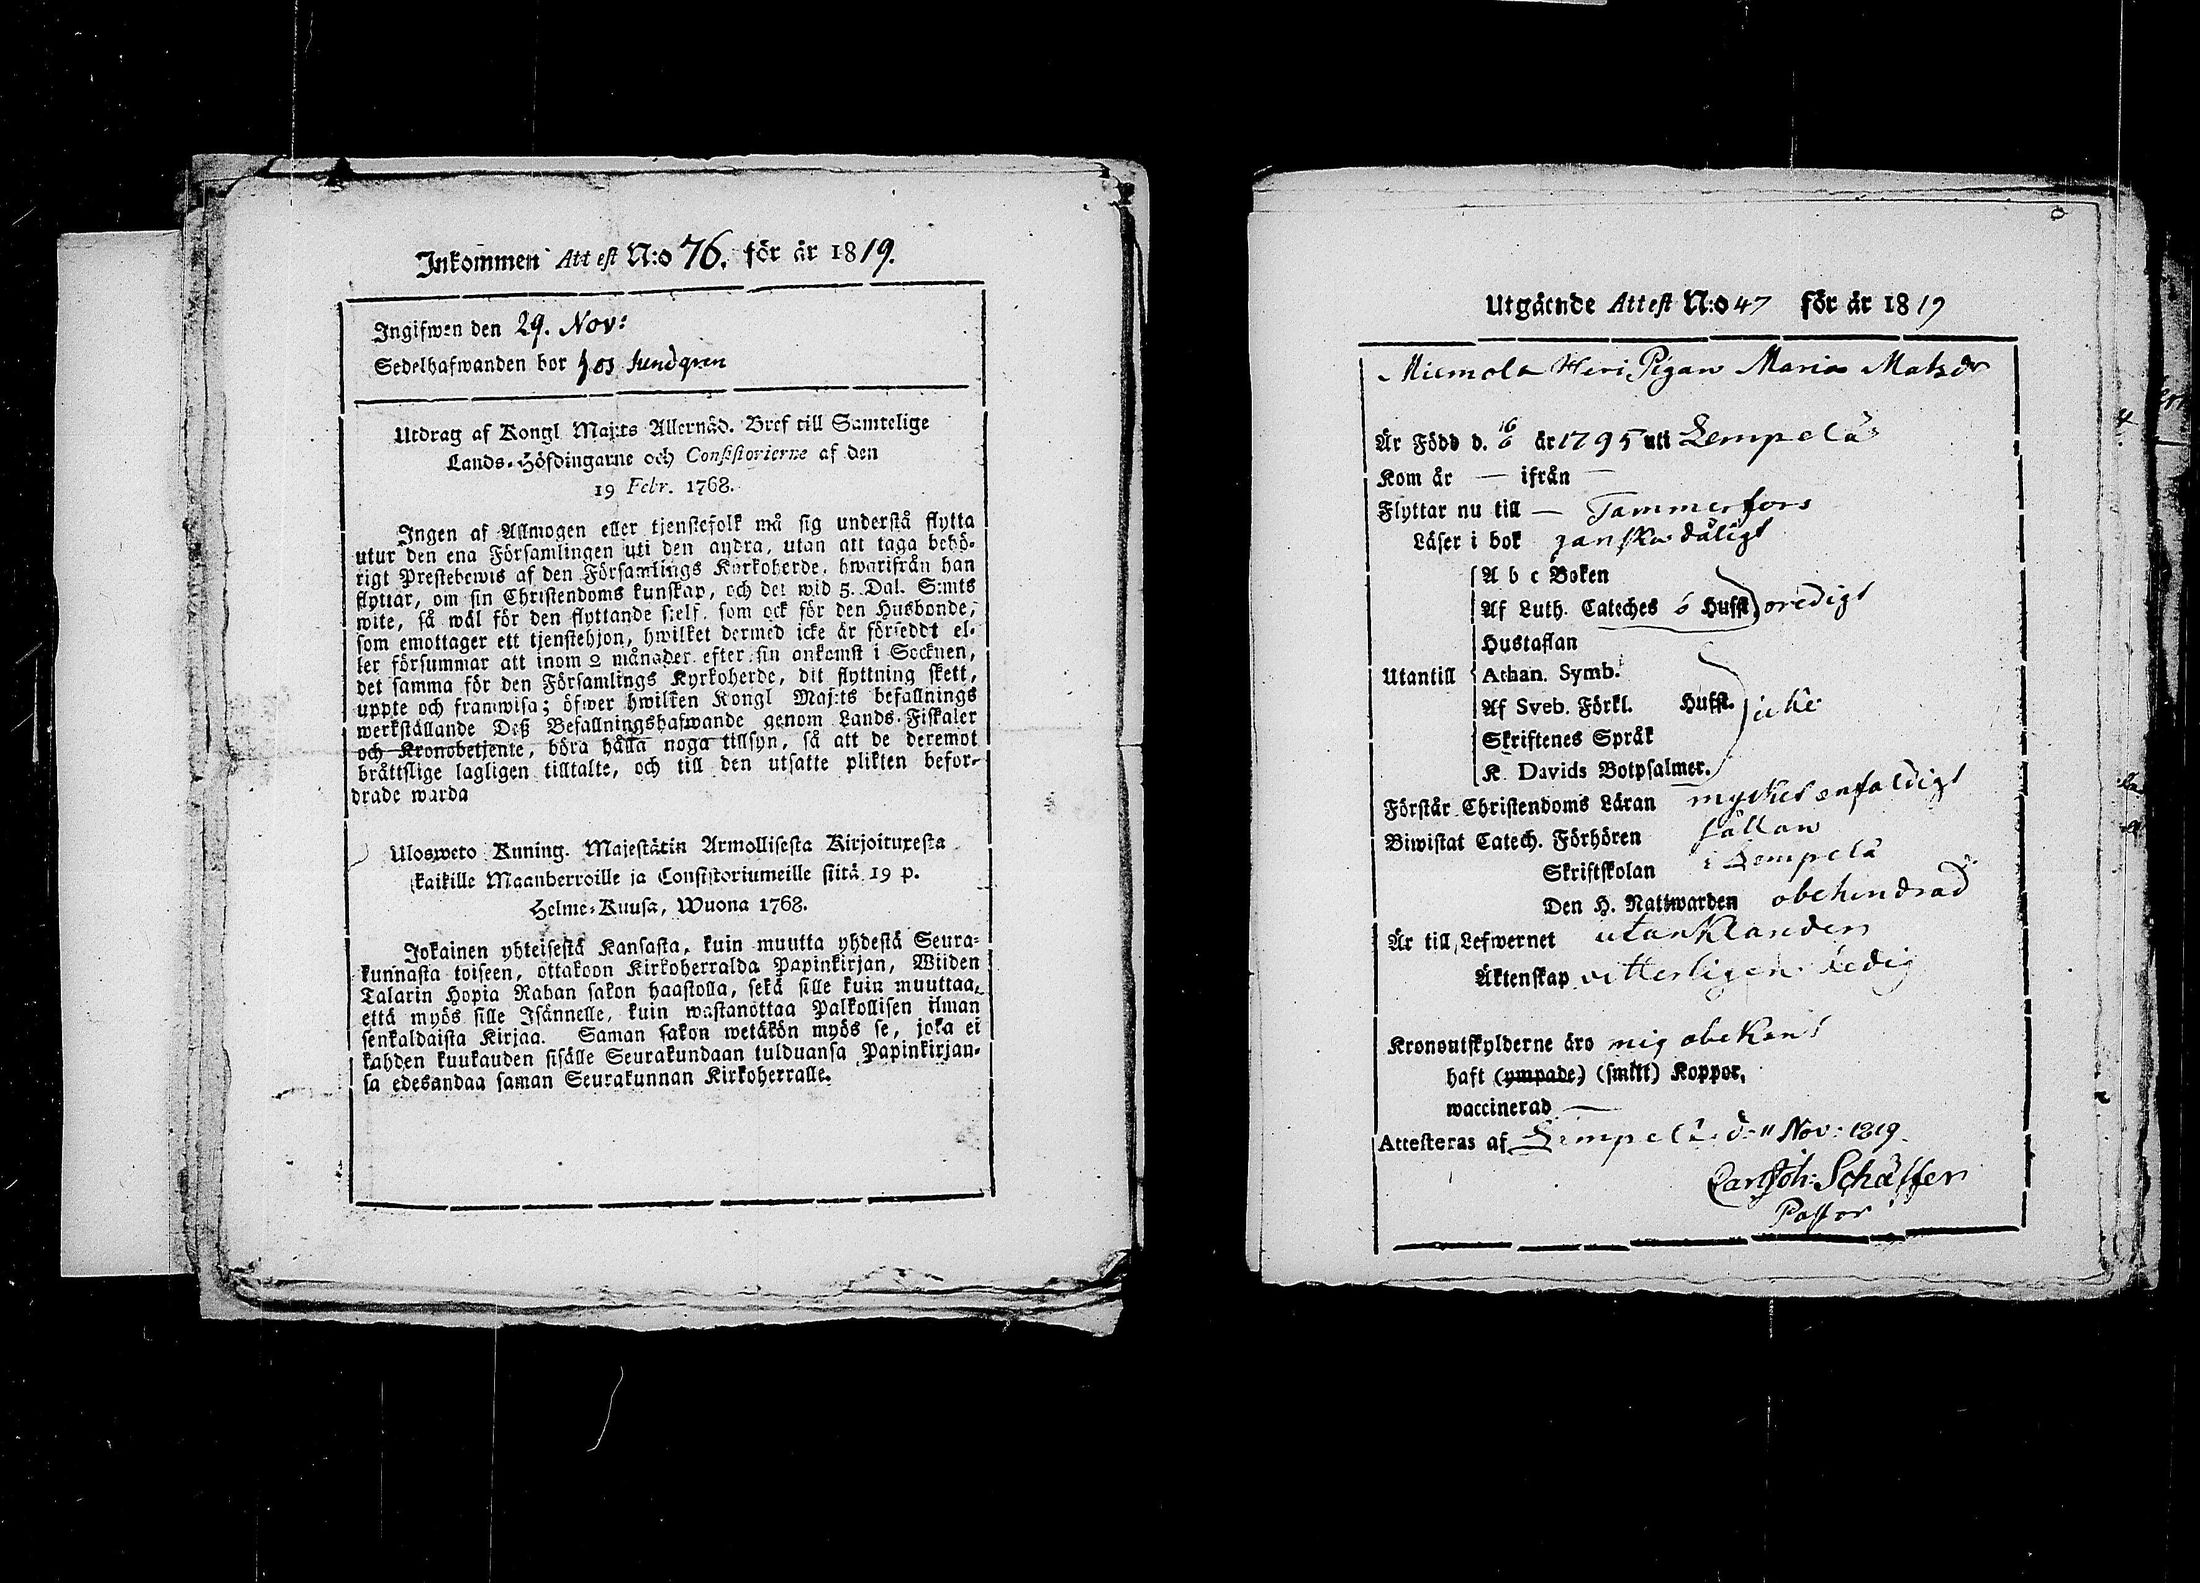 Inkommen Attest N:o 76. för år 1819.
Ingifwen den 29. Nov:
Sedelhafwanden bor hos Sundgren
Utdrag af Kongl Maj:ts Allernåd. Bref till Samtelige
Lands-Höfdingarne och Consistorierne af den
19 Febr. 1768.
Ingen af Allmogen eller tjenstefolk må sig understå flytta
utur den ena Församlingen uti den andra, utan att taga behö-
rigt Prestebewis af den Församlings Kyrkoherde, hwarifrån han
flyttar, om sin Christendoms kunskap, och det wid 5. Dal. S:mts
wite, så wäl för den flyttande sjelf, som ock för den Husbonde,
som emottager ett tjenstehjon, hwilket dermed icke är förseddt el-
ler försummar att inom 2 månader efter sin ankomst i Socknen,
det samma för den Församlings Kyrkoherde, dit flyttning skett,
uppte och framwisa; öfwer hwilken Kongl Maj:ts befallnings
werkställande Deß Befallningshafwande genom Lands-Fiskaler
och Kronobetjente, böra hålla noga tillsyn, så att de deremot
bråttslige lagligen tilltalte, och till den utsatte plikten befor-
drade warda
Ulosweto Kuning. Majestätin Armollisesta Kirjoituxesta
kaikille Maanherroille ja Consistoriumeille siitä 19 p.
Helme-Kuusa, Wuona 1768.
Jokainen yhteisestä Kansasta, kuin muutta yhdestä Seura-
kunnasta toiseen, ottakoon Kirkoherralda Papinkirjan, Wiiden
Talarin Hopia Rahan sakon haastolla, sekä sille kuin muuttaa,
että myös sille Isännelle, kuin wastanottaa Palkollisen ilman
senkaldaista Kirjaa. Saman sakon wetäkön myös se, joka ei
kahden kuukauden sisälle Seurakundaan tulduansa Papinkirjan-
sa edesandaa saman Seurakunnan Kirkoherralle.
Utgående Attest N:o 47 för år 1819
Pigan Maria Matsdr
Är Född d. 16/6 år 1795 uti Lempelä
Kom år — ifrån —
Flyttar nu till — Tammerfors
Läser i bok ganska dåligt
A b c Boken
Af Luth. Cateches 6 Hufst. oredigt
Hustaflan
Utantill Athan. Symb.
Af Sveb. Förkl. Hufst. icke
Skriftenes Språk
K. Davids Botpsalmer.
Förstår Christendoms Läran mycket enfaldigt
Biwistat Catech. Förhören sällan
Skriftskolan i Lempelä
Den H. Nattwarden obehindrad
Är till Lefwernet utan klander
Äktenskap witterligen ledig
Kronoutskylderne äro mig obekant
haft (ympade) (smitt) Koppor,
waccinerad —
Attesteras af Lempelä d. 11 Nov: 1819.
Carl Joh: Schäffer
Pastor